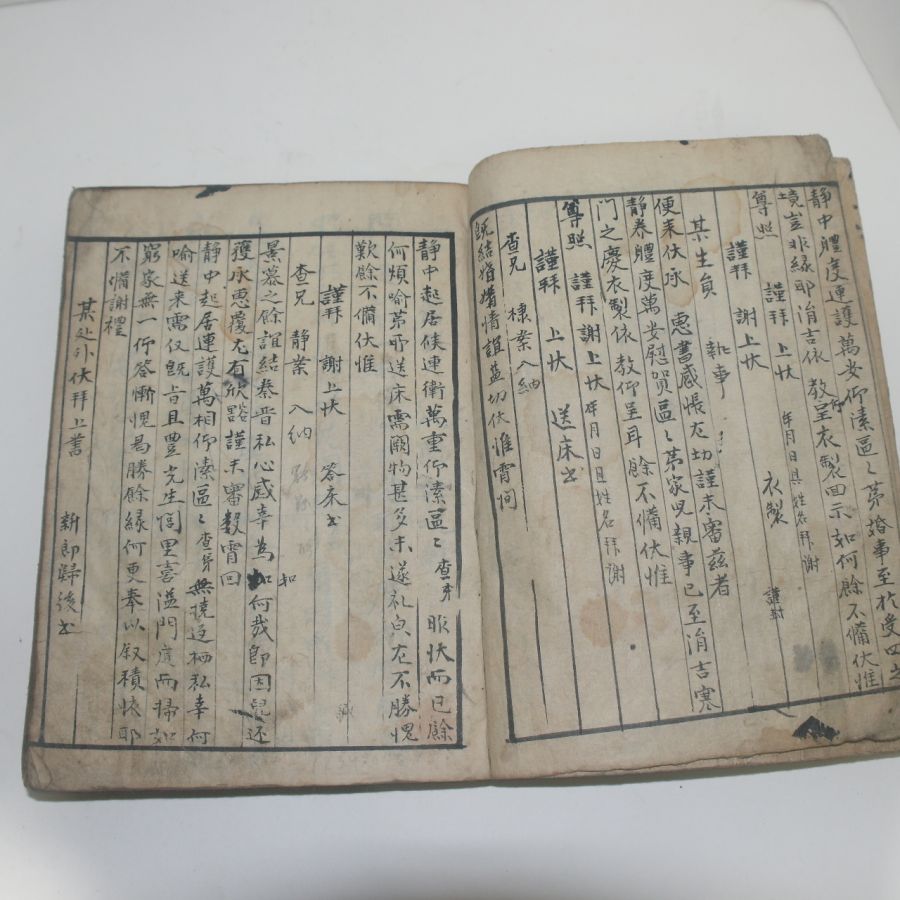 靜中體度連護萬安仰溸區〻弟婚事至於受四
境豈非緣耶涓吉依 敎呈衣製回示如何餘不備伏惟
尊照 謹拜 上狀 年月日具姓名拜謝
謹拜 謝 上狀 衣製 謹封
某生員 執事
便來伏承 惠書感悵尤切謹未審玆者
靜眷體度萬安慰賀區〻弟家兒親事已至涓吉寒
門之慶衣製依 敎仰呈耳 餘不備伏惟
尊照 謹拜謝上狀 年月日具姓名拜謝
謹拜 上狀 送床書
査兄 棣案入納
旣結婚媾情誼益切伏惟霄間
靜中起居侯連衛萬重仰溸區〻査弟 依狀而已餘
何煩喩第所送床需關物甚多未遂礼白尤不勝愧
歎餘不備伏惟
謹拜 謝上狀 答床書
査兄 靜案 入納
景慕之餘誼結秦晉私心感幸為如何哉卽因兒還
獲承惠覆尤有欣豁謹未審數宵回
靜中起居連護萬相仰溸區〻査弟 無撓返栖私幸何
喩送來需仅旣旨且豊光生閭里喜溢門庭而歸如
窮家無一行答慚愧曷勝餘緣何更奉以叙積悵耶
不備謝禮
某处外伏拜上書 新郞歸後書